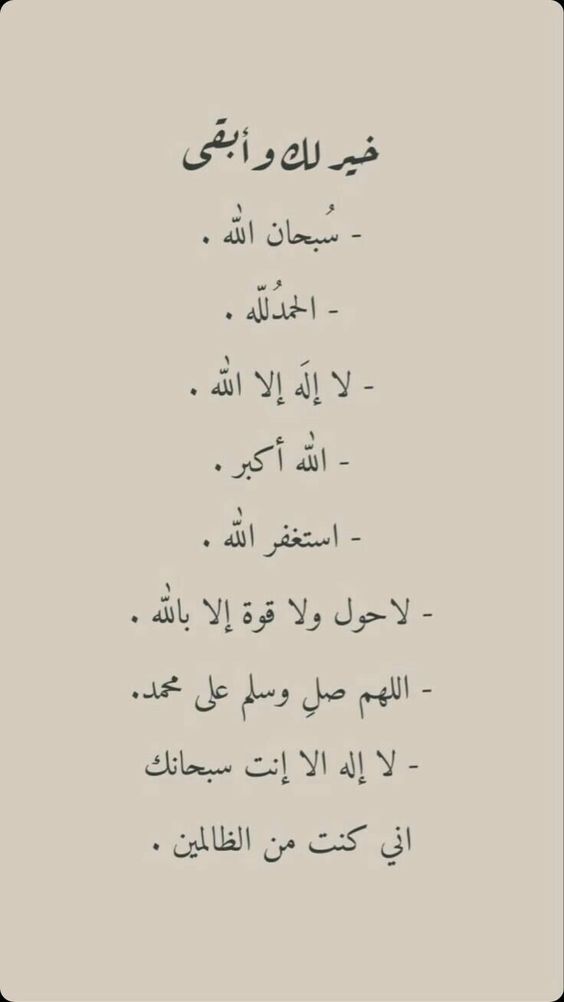 خير لك وأبقى
- سُبحان الله .
- الحمدُللّه .
- لا إلَه إلا الله .
- الله أكبر .
- استغفر الله .
- لاحول ولا قوة إلا بالله .
- اللهم صلِ وسلم على محمد.
- لا إله الا إنت سبحانك
اني كنت من الظالمين .